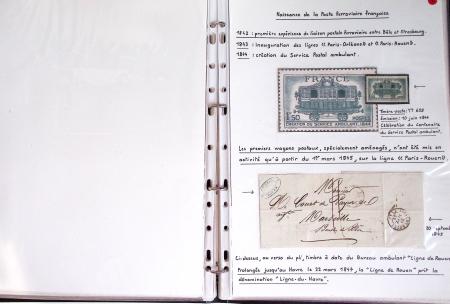 Naissance de la Poste Ferroviaire française
1842 : première expérience de liaison postale ferroviaire entre Bâle et Strasbourg.
1843 : inauguration des lignes "Paris-Orléans" et "Paris-Rouen".
1844 : création du Service Postal ambulant.
FRANCE
1F50
POSTES
CRÉATION DU SERVICE AMBULANT. 1844
Timbre-poste :
Émission : 10 juin 1944
Célébration du Centenaire
du Service Postal ambulant.
Les premiers wagons postaux, spécialement aménagés, n'ont été mis en
activité qu'à partir du 1er mars 1845, sur la ligne "Paris-Rouen".
Monsieur
Marseille
30
1845
Ci-dessus, au verso du pli, timbre à date du Bureau ambulant "Ligne de Rouen".
Prolongée jusqu'au Havre le 22 mars 1847, la "Ligne de Rouen" prit la
dénomination "Ligne-du-Havre".